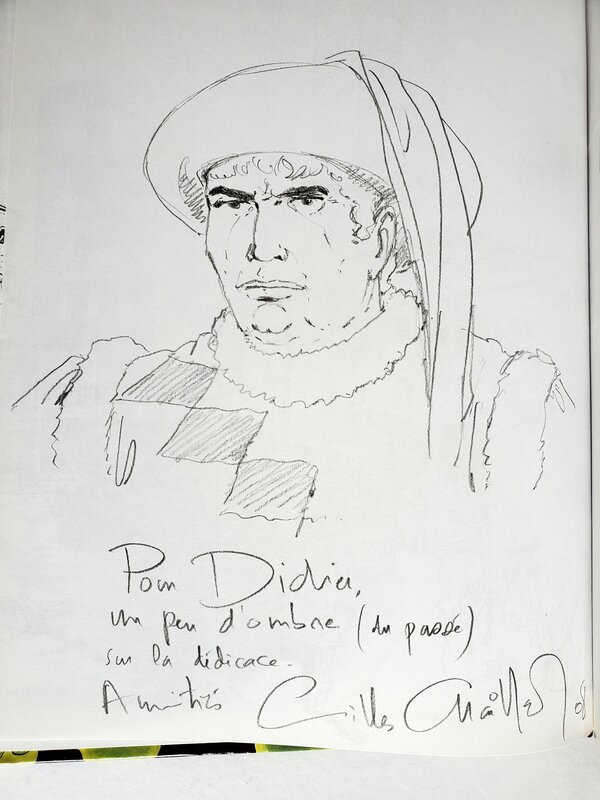 Pour Didier,
un peu d'ombre (du passé)
sur la dédicace.
Amitiés Gilles Chaillet 08